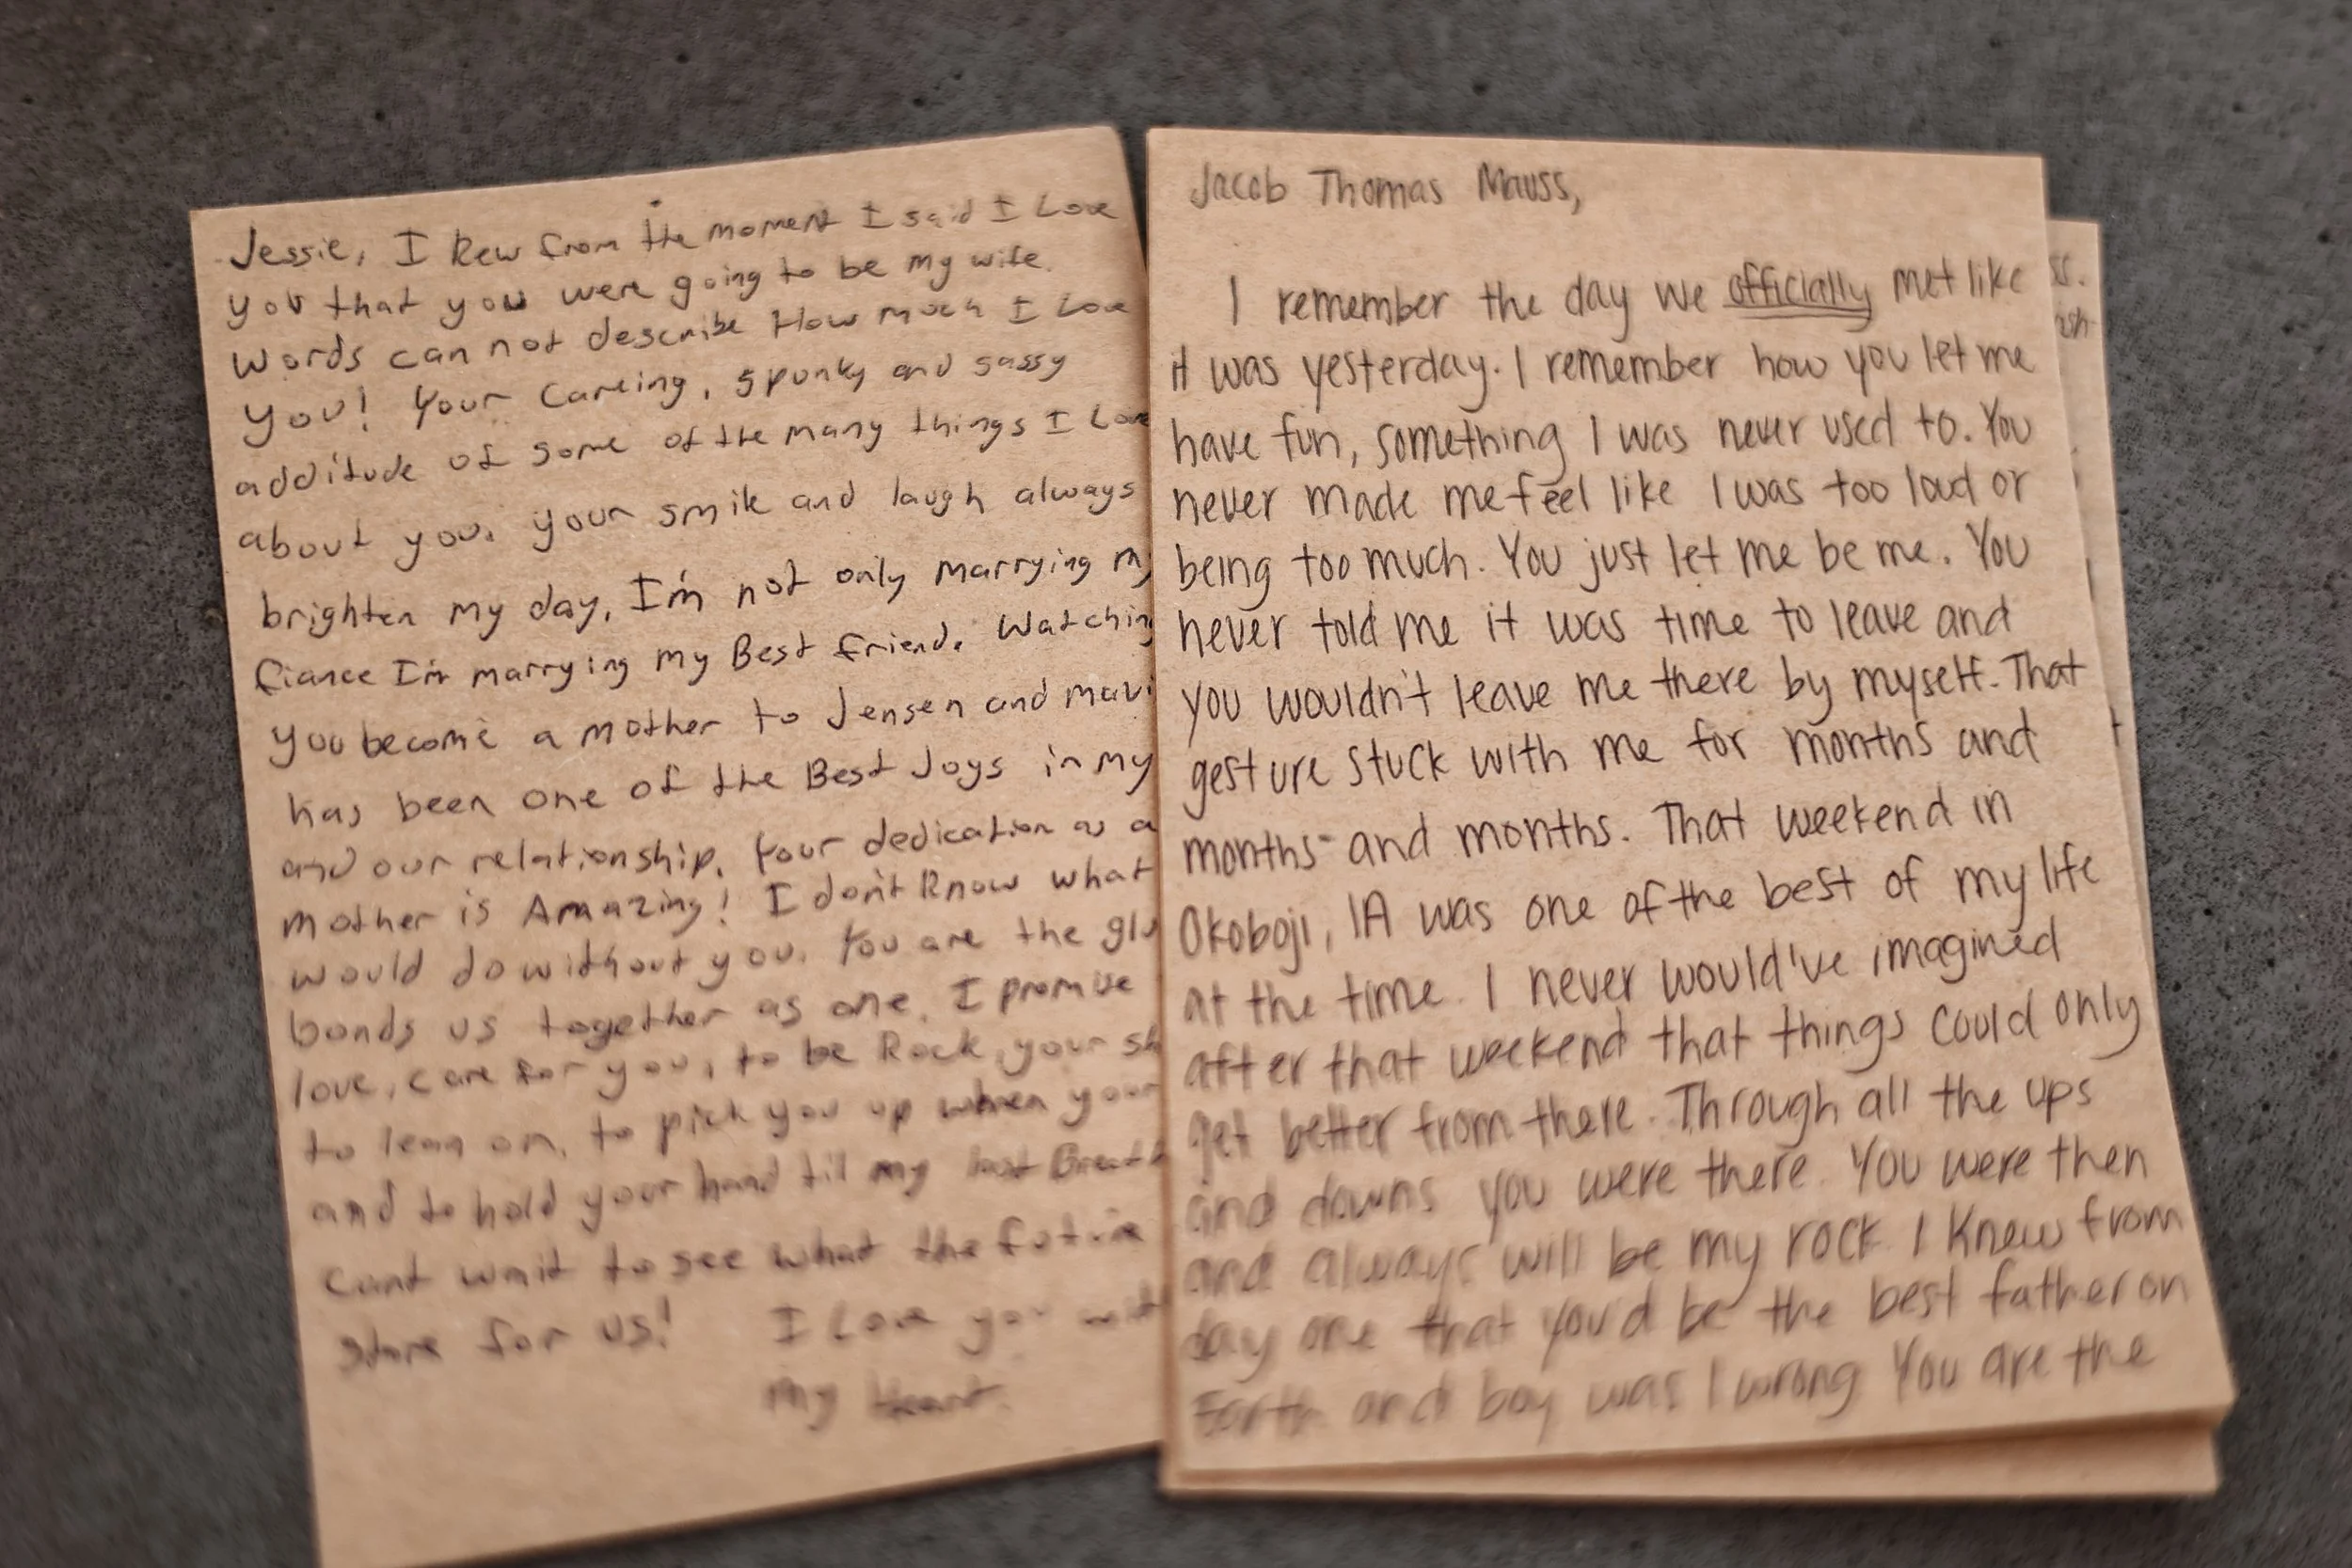 Jessie, I Kew from the moment I said I Love
you that you were going to be my wife.
Words can not describe How much I Love
you! Your Careing, spunky and sassy
additude of some of the many things I Love
about you. your smile and laugh always
brighten my day, I'm not only marrying my
fiance I'm marrying my Best friend. Watching
you become a mother to Jensen and
has been one of the Best Joys in my
and our relationship. Your dedication as a
mother is Amazing! I don't Know what
would do without you. You are the
bonds us together as one. I promise
love, care for you, to be Rock, your
to lean on, to pick you up when your
and to hold your hand til my last Breath
Cant wait to see what the future
store for us! I Love you with
my Heart.
Jacob Thomas Mauss,
I remember the day we officially met like
it was yesterday. I remember how you let me
have fun, something I was never used to. You
never made me feel like I was too loud or
being too much. You just let me be me. You
never told me it was time to leave and
you wouldn't leave me there by myself. That
gesture stuck with me for months and
months and months. That weekend in
Okoboji, IA was one of the best of my life
at the time. I never would've imagined
after that weekend that things could only
get better from there. Through all the ups
and downs you were there. You were then
and always will be my rock. I knew from
day one that you'd be the best father on
Earth and boy was I wrong You are the